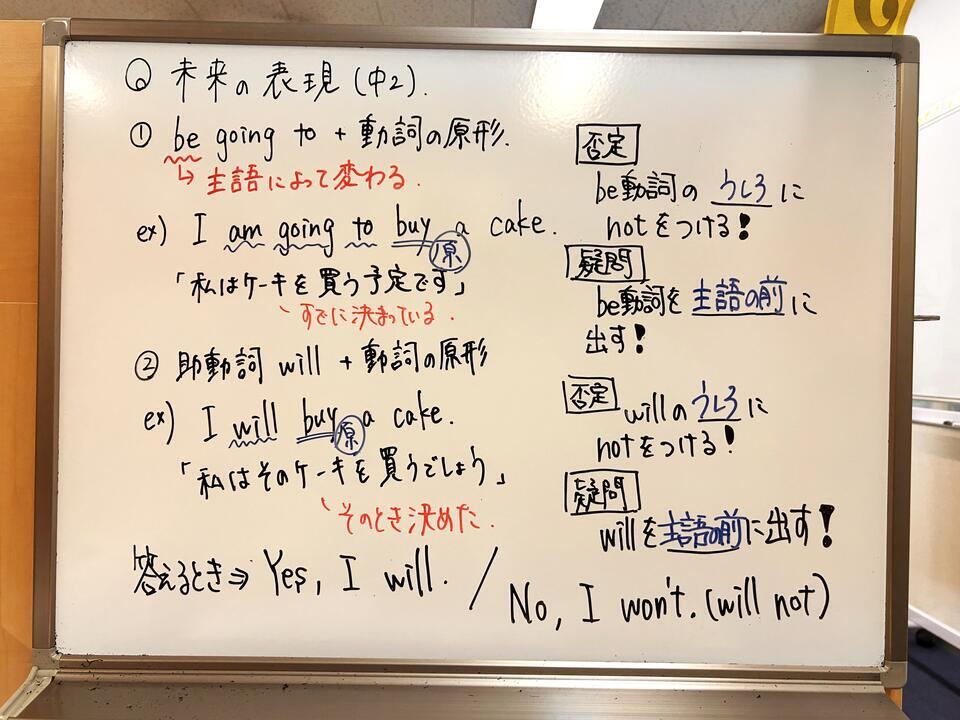 ◎ 未来の表現(中2).
① be going to + 動詞の原形.
↳ 主語によって変わる.
ex) I am going to buy a cake.
原
「私はケーキを買う予定です」
すでに決まっている.
② 助動詞 will + 動詞の原形
ex) I will buy a cake.
原
「私はそのケーキを買うでしょう」
そのとき決めた.
否定
be動詞の うしろに
notをつける!
疑問
be動詞を 主語の前に
出す!
否定 willの うしろに
notをつける!
疑問
willを主語の前に出す!
答えるとき⇒ Yes, I will. / No, I won't. (will not)